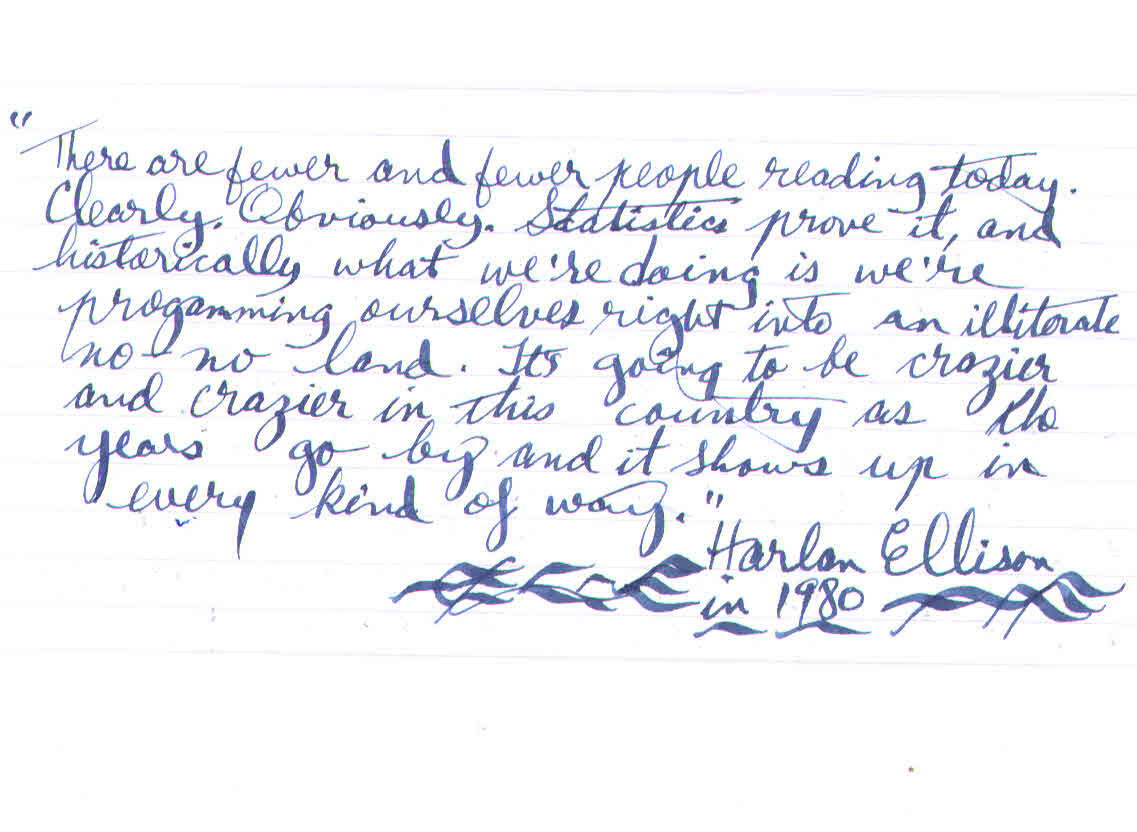 "There are fewer and fewer people reading today.
Clearly. Obviously. Statistics prove it, and
historically what we're doing is we're
progamming ourselves right into an illiterate
no-no land. It's going to be crazier
and crazier in this country as the
years go by and it shows up in
every kind of way."
Harlan Ellison
in 1980